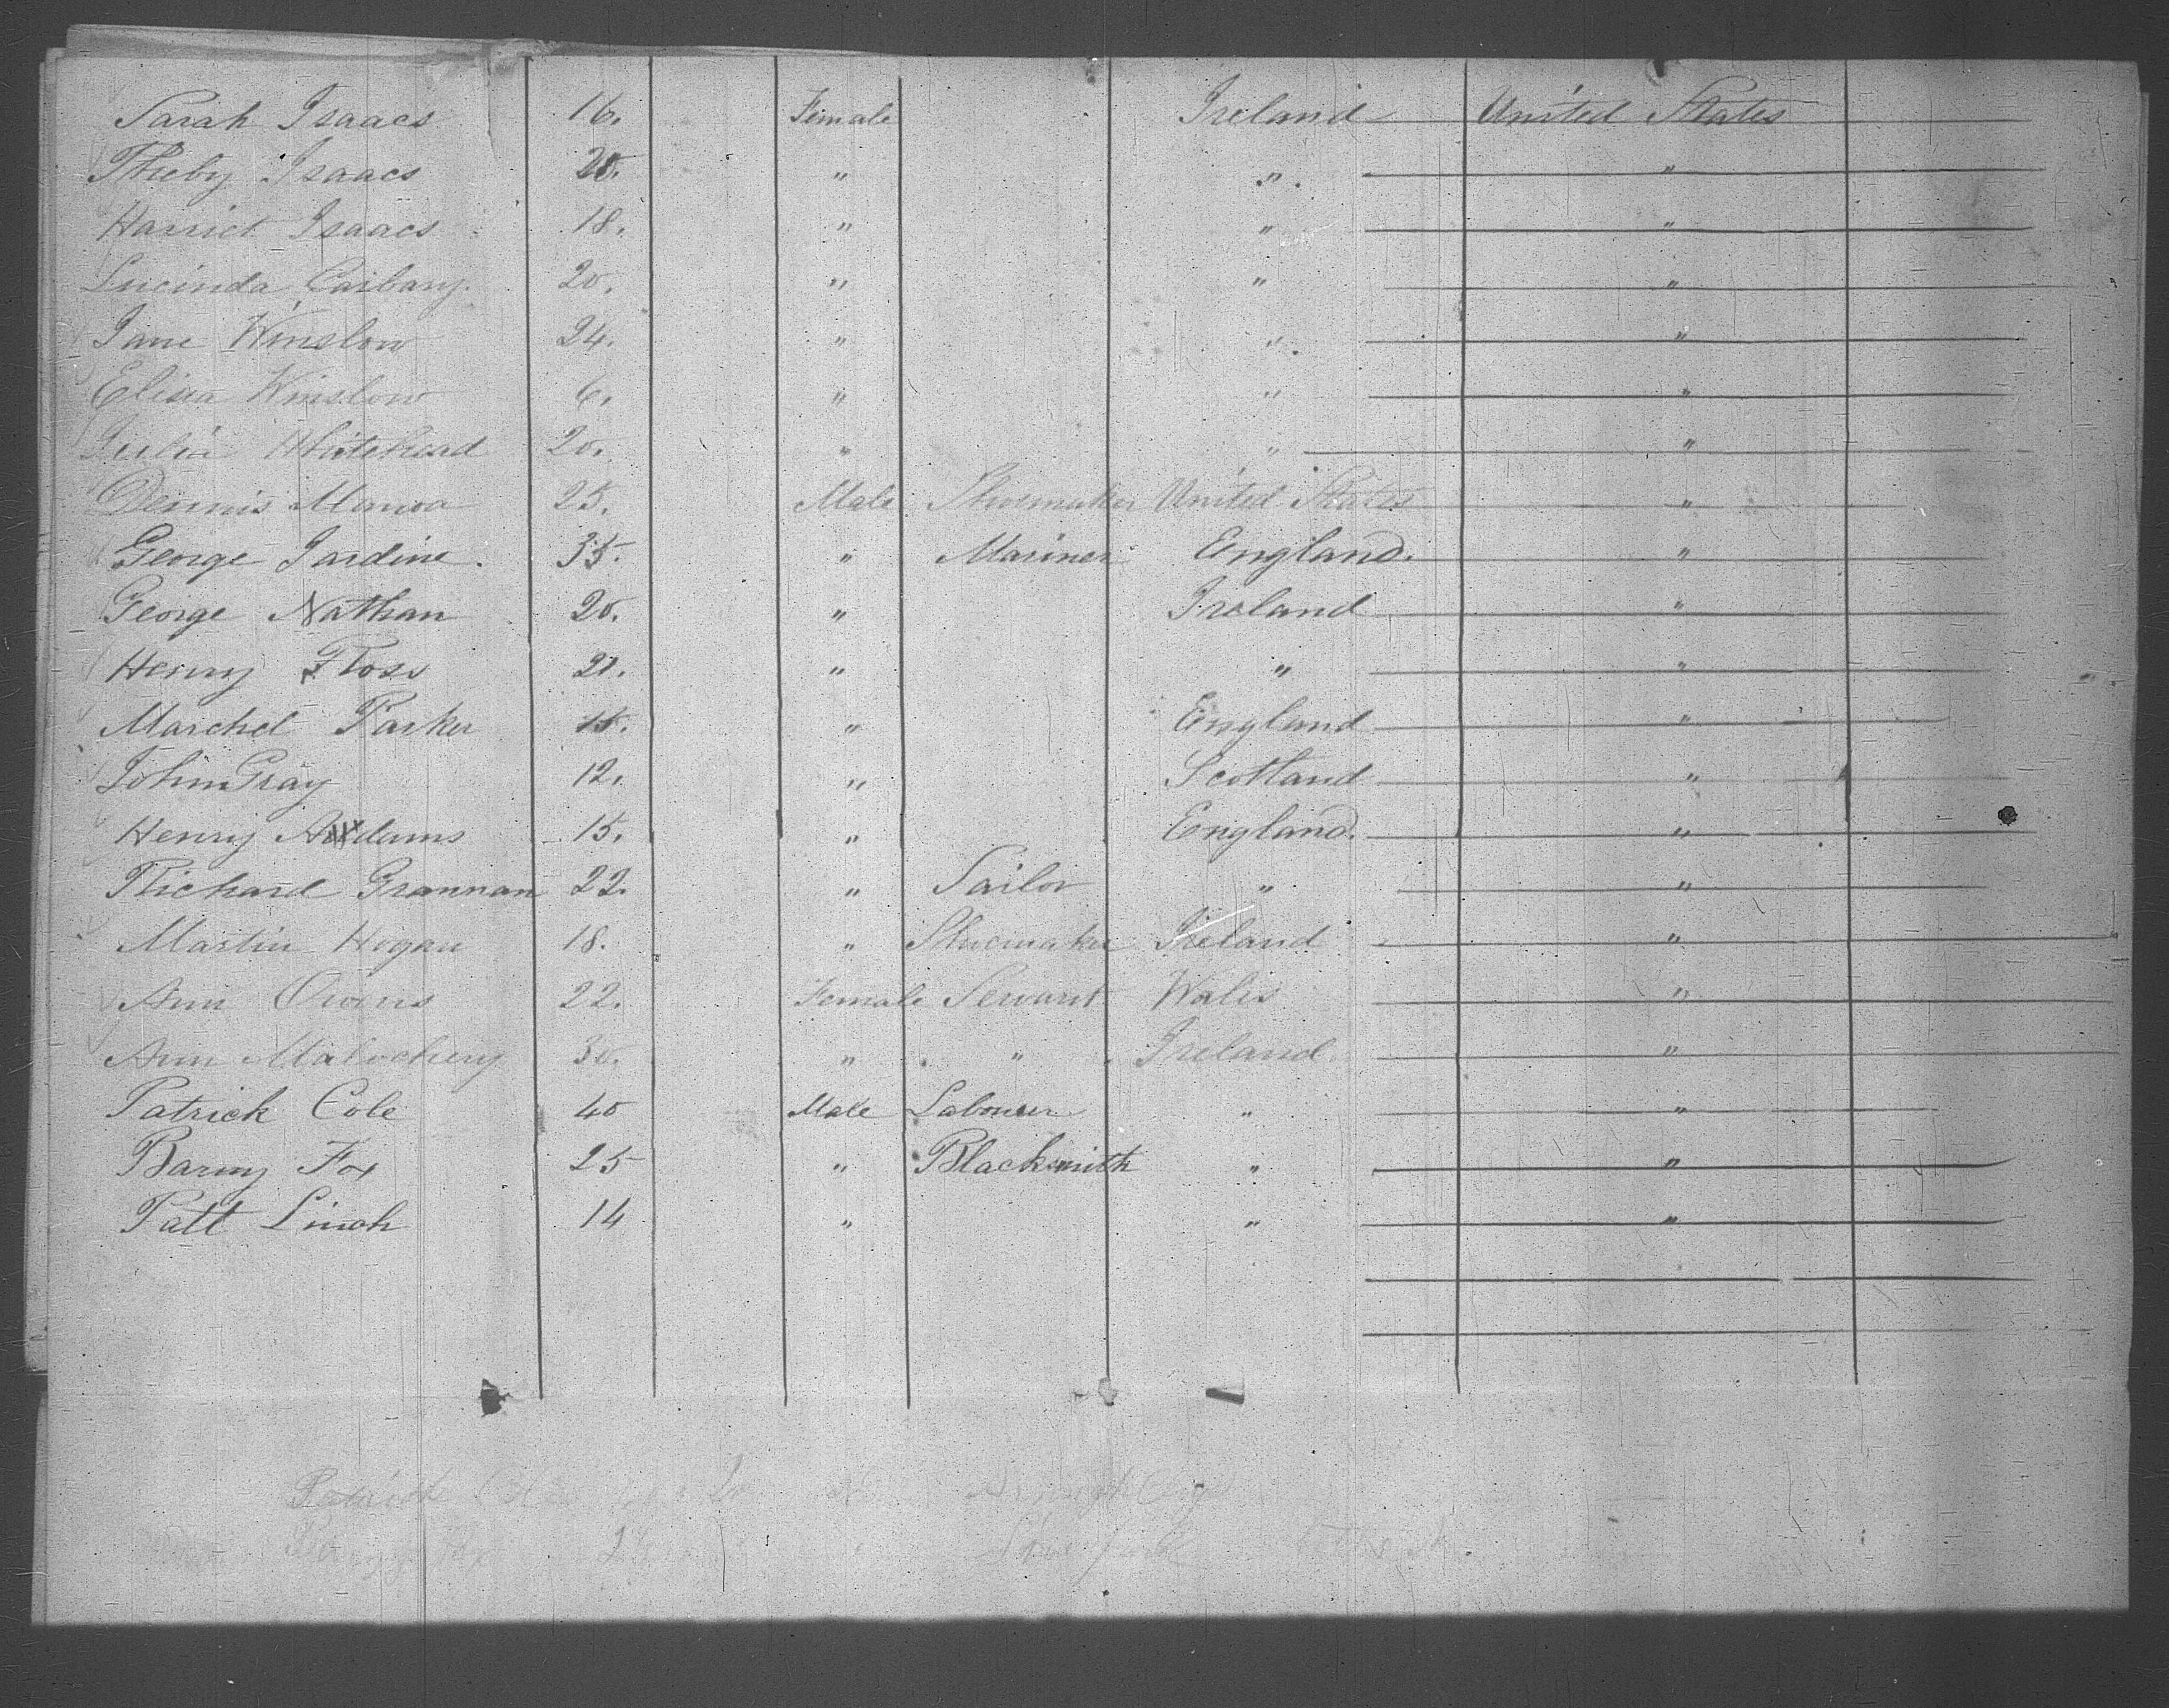 Sarah Isaacs 16. Female Ireland United States
Pheby Isaacs 20. " " "
Harriet Isaacs 18. " " "
Lucinda Carbary. 20. " " "
Jane Winslow 24. " " "
Eliza Winslow 6. " " "
Julia Whitehead 20. " " "
Dennis 25. Male Shoemaker United States "
George Jardine. 35. " Mariner England. "
George Nathan 20. " Ireland "
Henry Ross " " "
Marchel Parker 15. " England "
John Gray 12. " Scotland "
Henry Addams 15. " England. "
Richard Grannan 22. " Sailor " "
Martin Hogan 18. " Shoemaker Ireland "
Ann Owens 22. Female Servant Wales "
Ann 30. " " Ireland "
Patrick Cole 40 Male Labourer " "
Barny Fox 25 " Blacksmith " "
Patt Linch 14 " " "